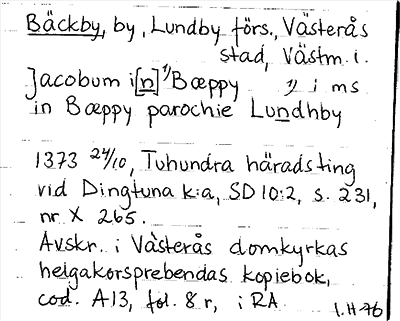 Bäckby, by, Lundby förs., Västerås
stad, Västm. l.
Jacobum i[n] 1) Bæppy 1) i ms
in Bæppy parochie Lundhby
1373 24/10, Tuhundra häradsting
vid Dingtuna k:a, SD 10:2, s. 231,
nr X 265.
Avskr. i Västerås domkyrkas
helgakorsprebendas kopiebok,
cod. A13, fol. 8 r, i RA.